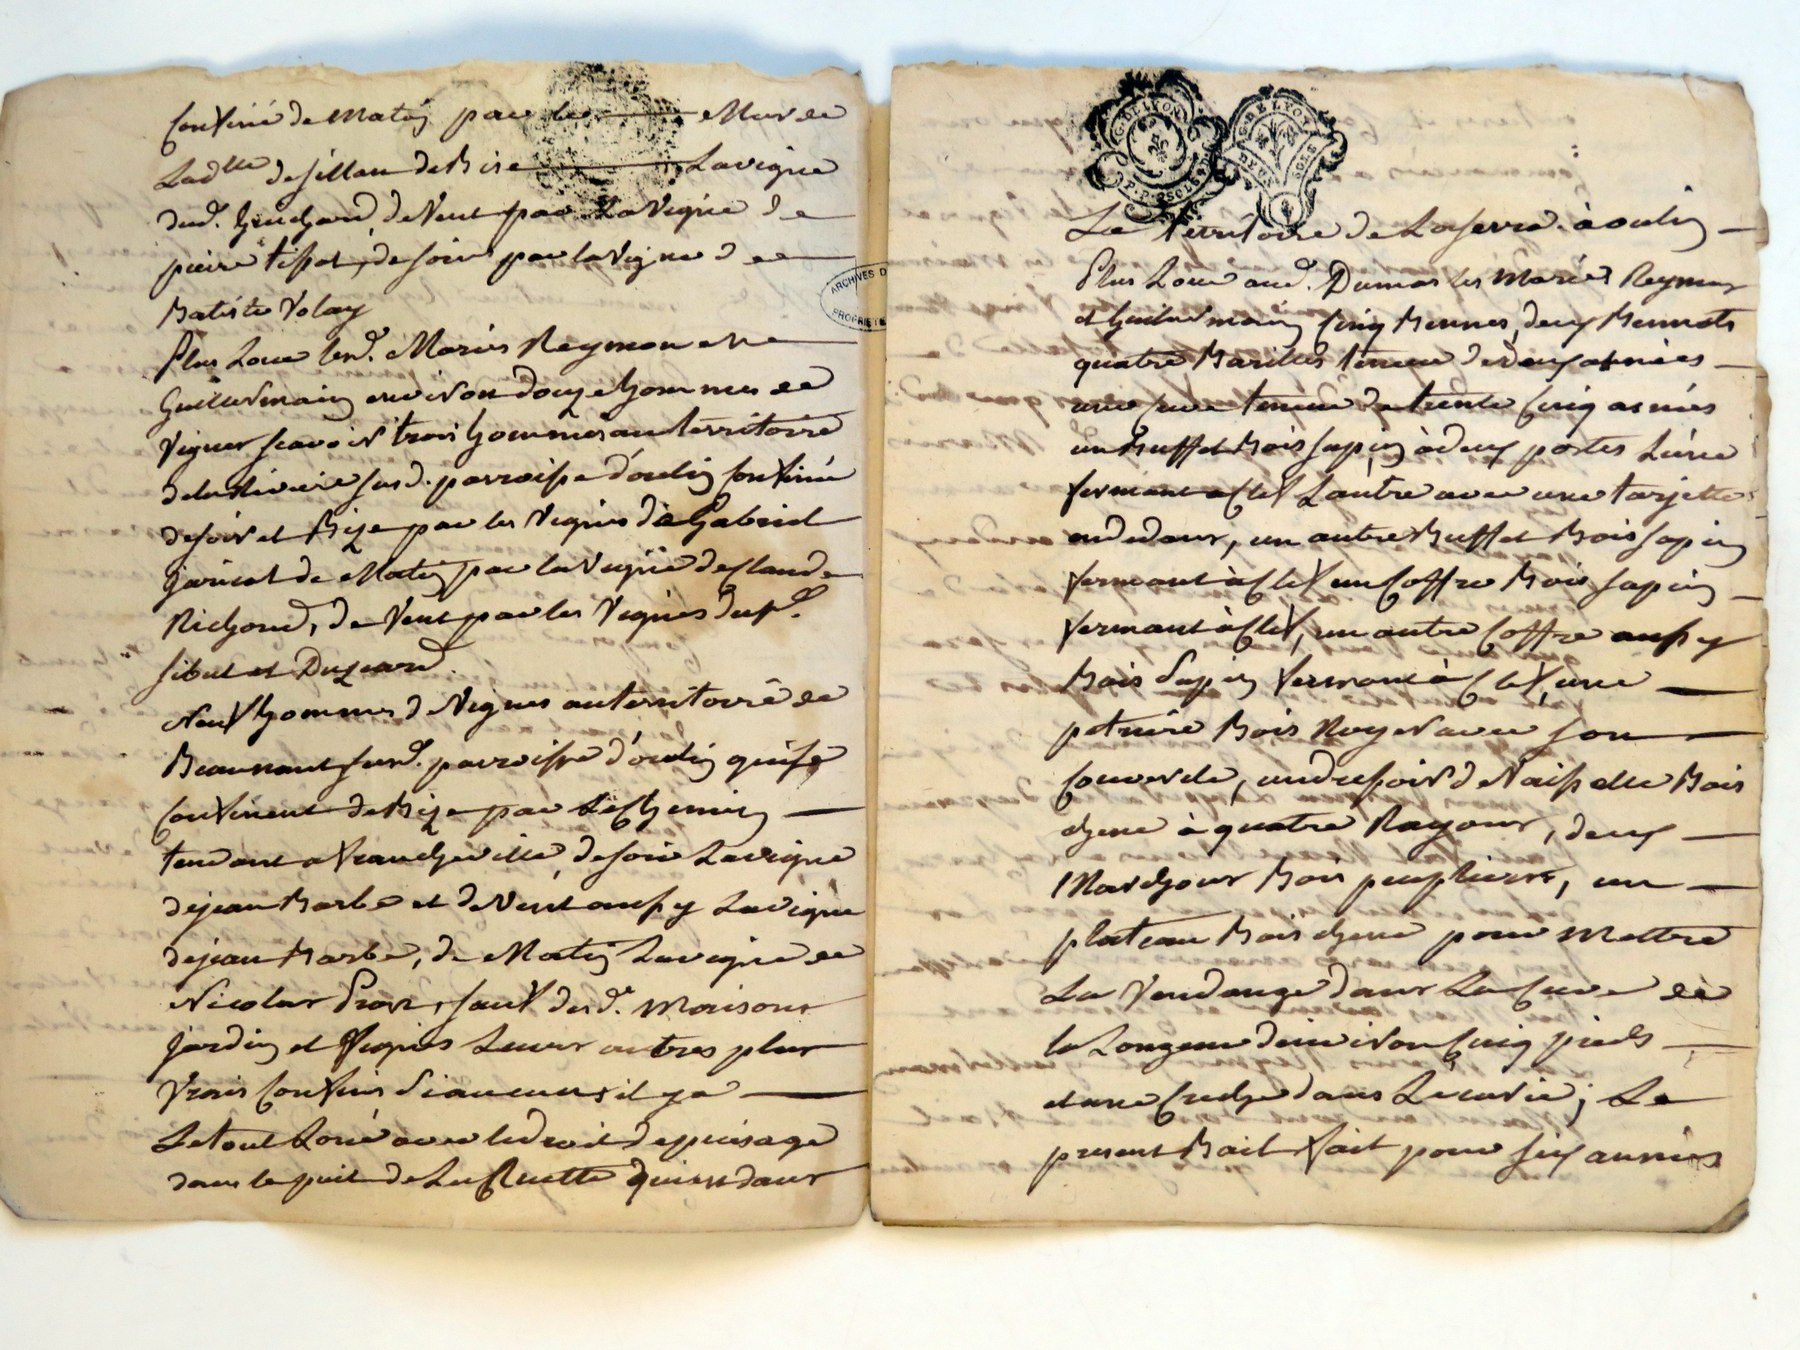 Confiné de Matin par les Mur de
Lad.lle de sillan de Bize La vigne
dud. Guichard, de Vent par La Vigne de
pierre tissot, de soir par la vigne de
Batiste Volay
Plus Loue led. Mariés Reymon et
Guillermain environ douze hommes de
Vignes scavoir trois hommes au territoire
de la Riviere susd. parroisse d'oulin Confinée
de soir et Bize par les Vignes de Gabriel
jaricot de Matin par la Vigne de Claude
Richond, de Vent par les Vignes du s.r
sibut et Dugeard.
Neuf hommes de Vignes au territoire de
Beaunant susd. parroisse d'oulin qui se
Confinent de Bize par Le Chemin
tendant a francheville, de soir La vigne
de jean Barbe et de Vent aussy La vigne
de jean Barbe, de Matin La vigne de
Nicolas Pron, sauf desd. Maisons
jardin et Vignes Leurs autres plus
Vrais Confins si aucuns il y a
Le tout Loué avec le droit de puisage
dans le puit de La Cruette qui est dans
Le territoire de La serra à oulin
Plus Loue aud. Dumas les Mariés Reymon
et Guillermain Cinq Bennes, deux Bennots
quatre Barilles teneur de deux asnées
une Cuve teneur de trente Cinq asnées
un Buffet Bois sapin à deux portes L'une
fermant a Clef L'autre avec une targette
au dedans, un autre Buffet Bois sapin
fermant à Clef un Coffre Bois sapin
fermant à Clef, un autre Coffre aussy
Bois Sapin fermant à Clef, une
petriere Bois Noyer avec son
Couvercle, un dressoir de Vaisselle Bois
chene à quatre Rayons, deux
Marchons Bois peuplier, un
plateau Bois chene pour Mettre
La Vendange dans La Cuve de
la Longeur d'environ Cinq pieds
et une Creche dans L'écurie; Le
present Bail fait pour six années
G. DE LYON
G. DE LYON
DEUX SOLS
ARCHIVES D
PROPRIETE